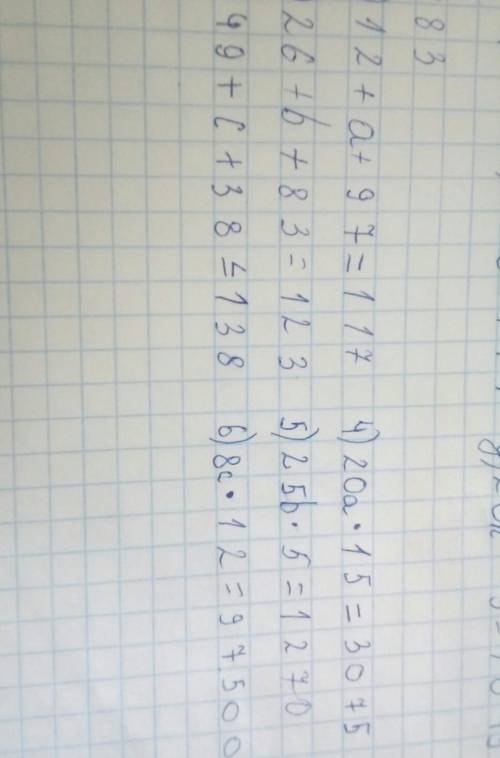 83
12 + a + 97 = 117 4) 20a · 15 = 3075
26 + b + 83 = 123 5) 25b · 5 = 1270
49 + c + 38 = 138 6) 8c · 12 = 97500